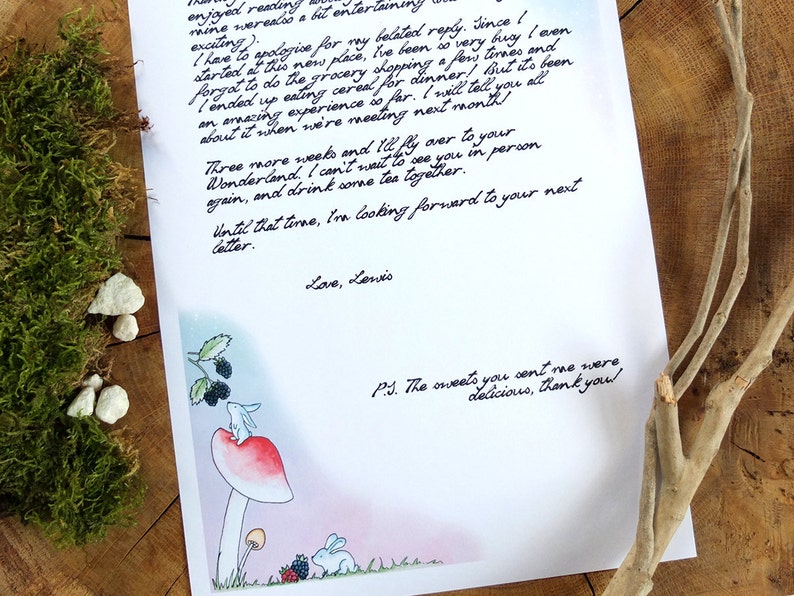 enjoyed reading about
mine werealso a bit entertaining
exciting).
I have to apologise for my belated reply. Since I
started at this new place, I've been so very busy I even
forgot to do the grocery shopping a few times and
I ended up eating cereal for dinner! But it's been
an amazing experience so far. I will tell you all
about it when we're meeting next month!
Three more weeks and I'll fly over to your
Wonderland. I can't wait to see you in person
again, and drink some tea together.
Until that time, I'm looking forward to your next
letter.
Love, Lewis
P.S. The sweets you sent me were
delicious, thank you!